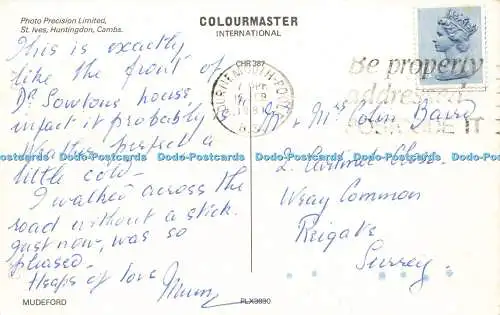 Photo Precision Limited,
St. Ives, Huntingdon, Cambs.
COLOURMASTER
INTERNATIONAL
CHR 387
This is exactly
like the front of
Dr. Sowtons house,
infact it probably is
Weather perfect a
little cold.
I walked across the
road without a stick.
just now, was so
pleased.
Heaps of love
Mum
MUDEFORD
PLX3930
BOURNEMOUTH-POOLE
Be properly
addressed
Mr & Mrs Colin Baird
2. Close.
Wray Common
Reigate
Surrey.
Dodo-Postcards Dodo-Postcards Dodo-Postcards Dodo-Postcards Dodo-Postcards Dodo-Postcards